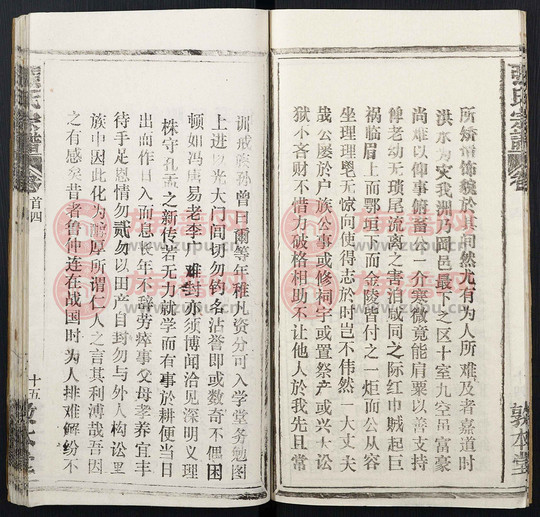 張氏宗譜
卷
敦本堂
所矯造飾貌於其间然尤有为人所难及者嘉道时
洪水为灾我洲乃圌邑最下之区十室九空虽富豪
尚难以仰事俯畜公一介寒微竟能肩粟以善支持
俾老幼无琐尾流离之害洎咸同之际红巾贼起巨
祸临眉上而鄂垣下而金陵皆付之一炬而公从容
坐理理髦无惊向使得志於时岂不伟然一大丈夫
哉公屡於户族公事或修祠宇或置祭产或兴大讼
狱不吝财不惜力破格相助不让他人於我先且常
训戒族孙曾曰爾等年稚凡资分可入学堂务勉图
上进以光大门闾切勿钓名沽誉即或数奇不偶困
顿如冯唐易老李广难封亦须博闻洽见深明义理
株守孔孟之新传若无力就学而有事於耕便当日
出而作日入而息长年不辞劳瘁事父母孝养宜丰
待手足恩情勿貳勿以田产自封勿与外人构訟里
族中因此化为醇厚所谓仁人之言其利溥哉吾因
之有感矣昔者鲁仲连在战国时为人排难解纷不
張氏宗譜
卷首四
十五
敦本堂